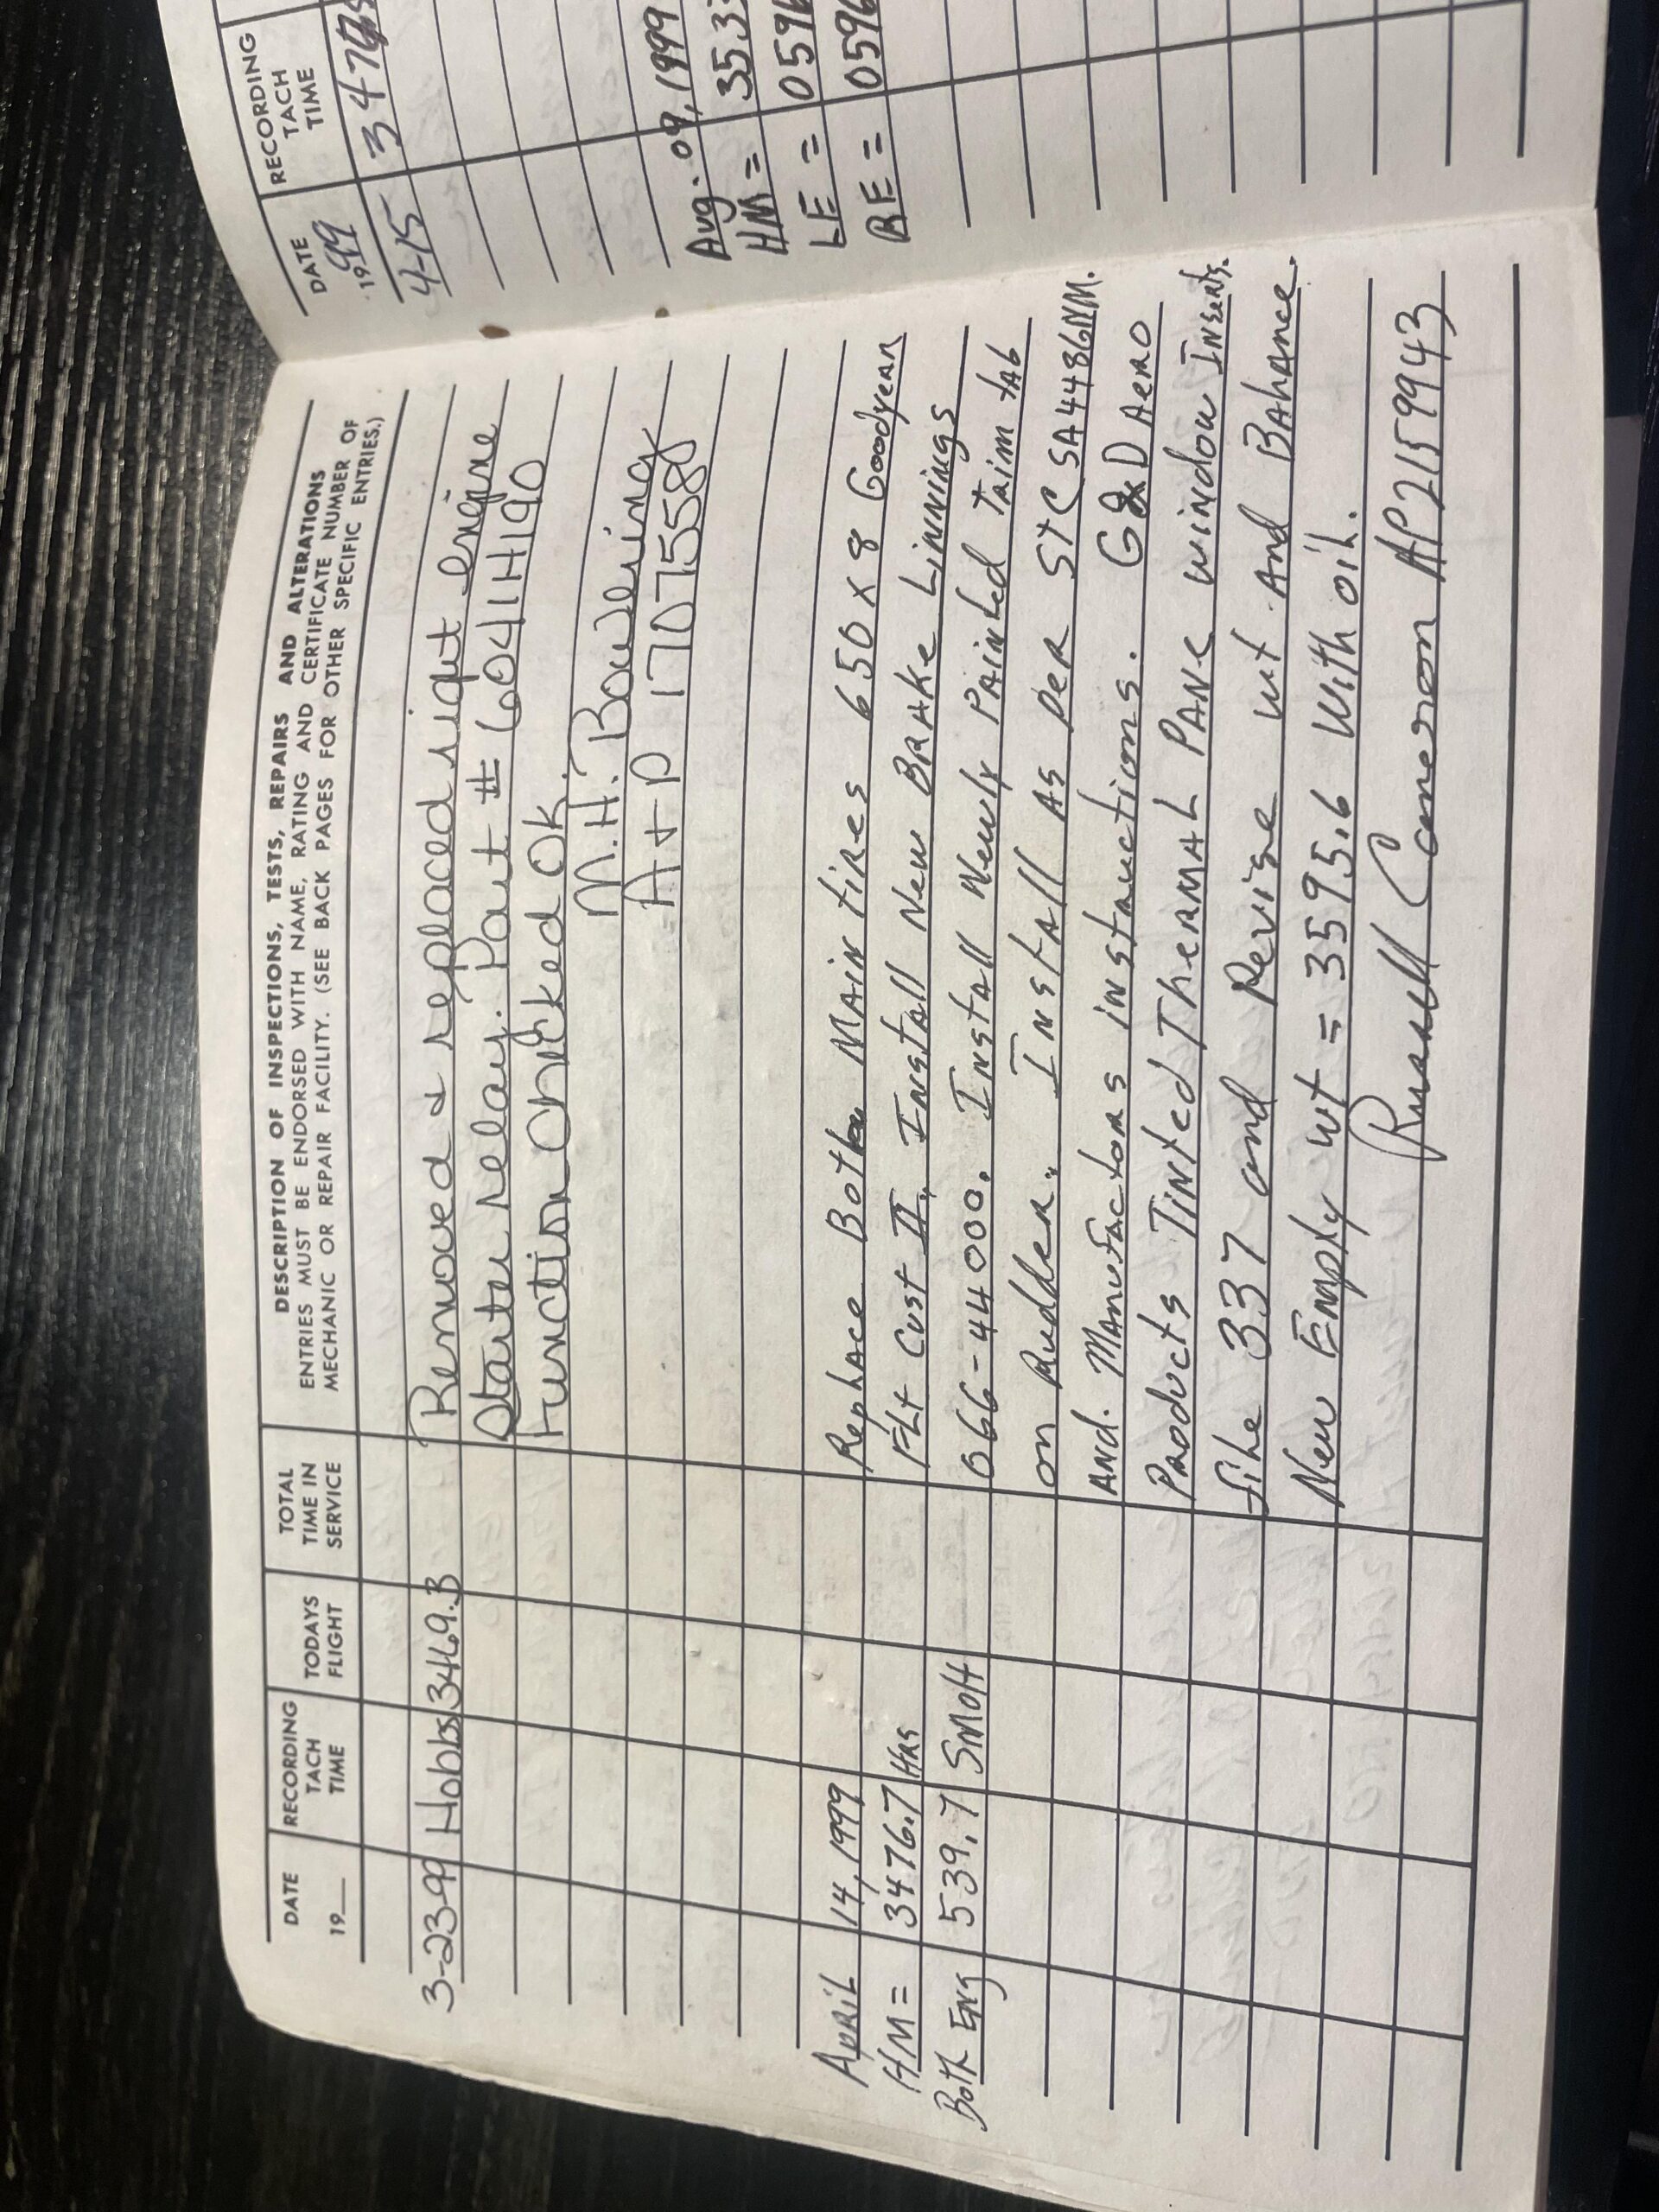 DATE
19__
RECORDING
TACH
TIME
TODAYS
FLIGHT
TOTAL
TIME IN
SERVICE
DESCRIPTION OF INSPECTIONS, TESTS, REPAIRS AND ALTERATIONS
ENTRIES MUST BE ENDORSED WITH NAME, RATING AND CERTIFICATE NUMBER OF
MECHANIC OR REPAIR FACILITY. (SEE BACK PAGES FOR OTHER SPECIFIC ENTRIES.)
3-23-99 Hobbs 3469.3 Removed & replaced right engine
Starter relay. Part # 6041H190
Function Checked OK.
M.H. Bowling
A+P 1707558
April 14, 1999 Replace Both Main tires 650 x 8 Goodyear
HM = 3476.7 Hrs Flt Cust II. Install New Brake Linnings
Both Eng 539.7 SMOH 066-44000. Install Newly Painted Trim tab
on Rudder. Install as per STC SA4486NM.
And. Manufactors instructions. G&D Aero
Products Tinted Thermal Pane window Inserts.
file 337 and Revise wt And Balance.
New Empty wt = 3595.6 With oil.
Russell Cameron AP2159943
DATE
1999
RECORDING
TACH
TIME
4-15
Aug. 09, 1999
HM = 353
LE = 0596
RE = 0596